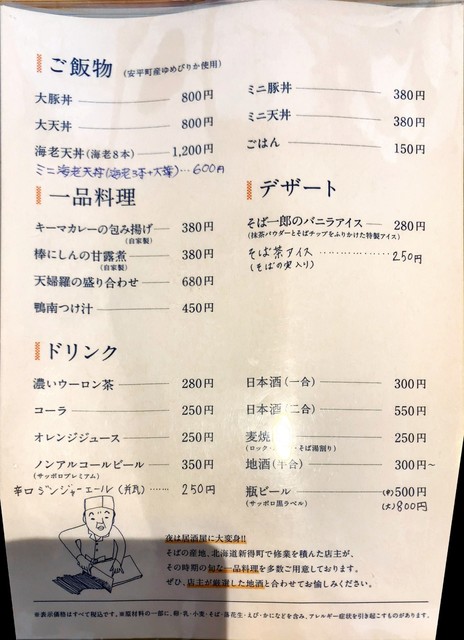 ご飯物 (安平町産ゆめぴりか使用)
大豚丼 800円
大天丼 800円
海老天丼(海老8本) 1,200円
ミニ海老天丼(海老3本+大葉)…600円
ミニ豚丼 380円
ミニ天丼 380円
ごはん 150円
一品料理
キーマカレーの包み揚げ 380円
(自家製)
棒にしんの甘露煮 380円
(自家製)
天婦羅の盛り合わせ 680円
鴨南つけ汁 450円
デザート
そば一郎のバニラアイス 280円
(抹茶パウダーとそばチップをふりかけた特製アイス)
そば茶アイス…………250円
(そばの実入り)
ドリンク
濃いウーロン茶 280円
コーラ 250円
オレンジジュース 250円
ノンアルコールビール 350円
(サッポロプレミアム)
辛口ジンジャーエール(丼瓦)……250円
日本酒(一合) 300円
日本酒(二合) 550円
麦焼 250円
(ロック・ ・そば湯割り)
地酒(半合) 300円~
瓶ビール (中)500円
(サッポロ黒ラベル) (大)800円
夜は居酒屋に大変身!!
そばの産地、北海道新得町で修業を積んだ店主が、
その時期の旬な一品料理を多数ご用意しております。
ぜひ、店主が厳選した地酒と合わせてお愉しみください。
※表示価格はすべて税込です。※原材料の一部に、卵・乳・小麦・そば・落花生・えび・かになどを含み、アレルギー症状を引き起こすものがあります。